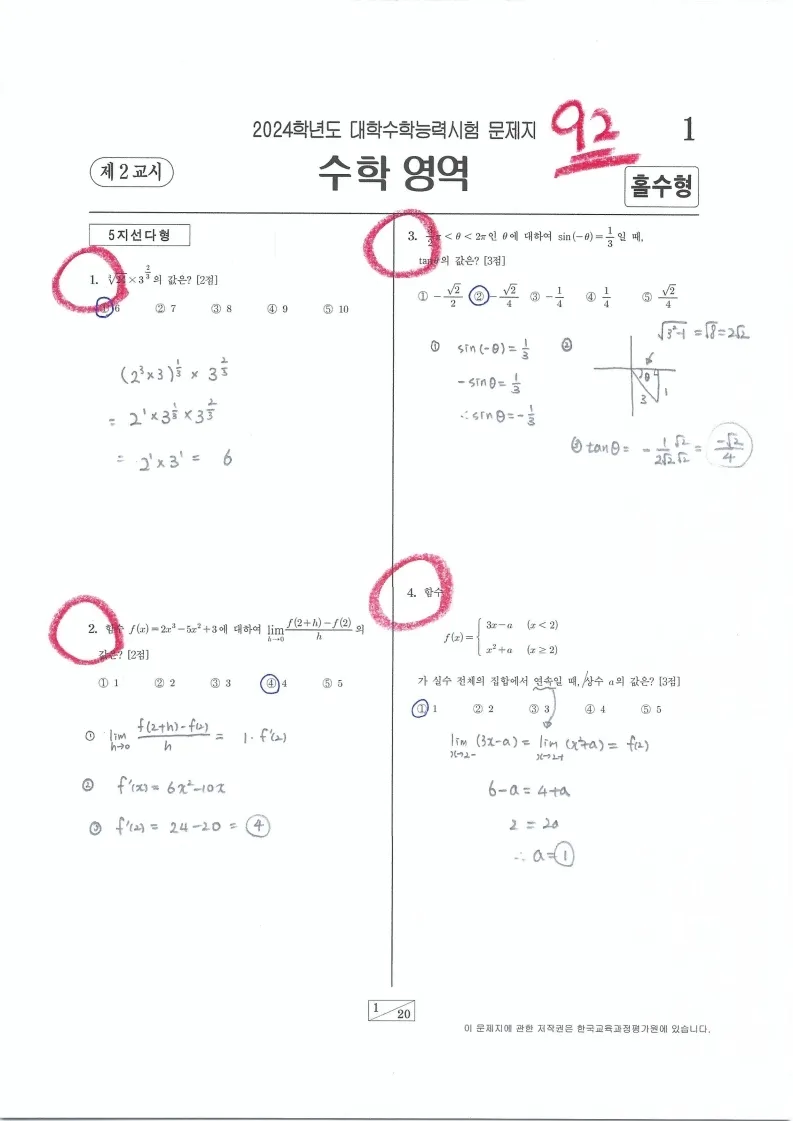 2024학년도 대학수학능력시험 문제지
92
1
제 2 교시
수학 영역
홀수형
5지선다형
1. ∛24 × 3^(2/3) 의 값은? [2점]
① 6 ② 7 ③ 8 ④ 9 ⑤ 10
(2³×3)^(1/3) × 3^(2/3)
= 2¹×3^(1/3)×3^(2/3)
= 2¹×3¹ = 6
2. 함수 f(x)=2x³−5x²+3에 대하여 lim_(h→0) (f(2+h)−f(2))/h 의
값은? [2점]
① 1 ② 2 ③ 3 ④ 4 ⑤ 5
① lim_(h→0) (f(2+h)−f(2))/h = 1·f′(2)
② f′(x)= 6x²−10x
③ f′(2) = 24−20 = 4
3. 3/2 π < θ < 2π 인 θ에 대하여 sin(−θ)=1/3 일 때,
tanθ의 값은? [3점]
① −√2/2 ② −√2/4 ③ −1/4 ④ 1/4 ⑤ √2/4
① sin(−θ)=1/3
−sinθ=1/3
∴sinθ=−1/3
② √(3²−1) =√8=2√2
θ
3
1
③ tanθ= −1/(2√2) √2/√2 = −√2/4
4. 함수
f(x)= { 3x−a (x<2)
x²+a (x≥2)
가 실수 전체의 집합에서 연속일 때, 상수 a의 값은? [3점]
① 1 ② 2 ③ 3 ④ 4 ⑤ 5
lim_(x→2−) (3x−a) = lim_(x→2+) (x²+a) = f(2)
6−a = 4+a
2 = 2a
∴ a=1
1
20
이 문제지에 관한 저작권은 한국교육과정평가원에 있습니다.